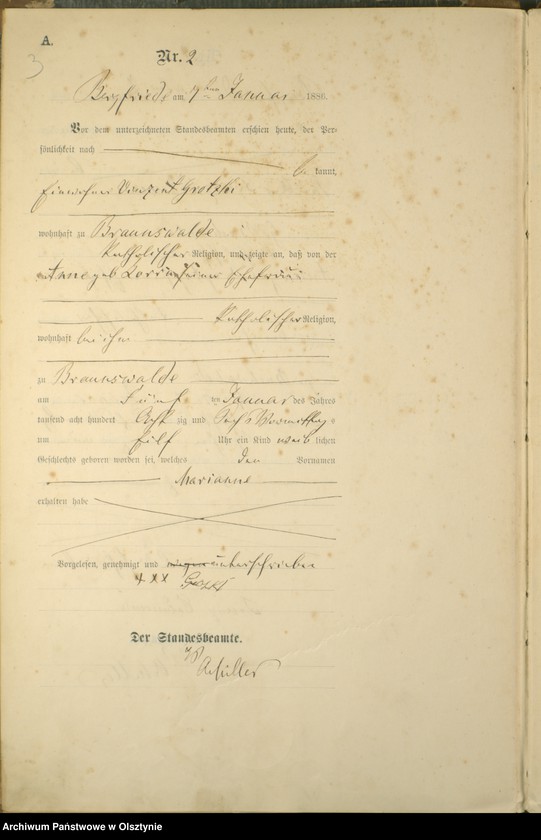 A.
3
Nr. 2
Bergfriede am 9ten Januar 1886.
Vor dem unterzeichneten Standesbeamten erschien heute, der Per-
sönlichkeit nach
kannt,
Einwohner Vinzent Grotzki
wohnhaft zu Braunswalde
katholischer Religion, und zeigte an, daß von der
Anne geb seiner Ehefrau
katholischer Religion,
wohnhaft bei ihm
zu Braunswalde
am Fünf ten Januar des Jahres
tausend acht hundert Acht zig und Sechs Vormittag
um Eilf Uhr ein Kind weib lichen
Geschlechts geboren worden sei, welches den Vornamen
Marianne
erhalten habe
Vorgelesen, genehmigt und unterschrieben
+ X X
Der Standesbeamte.
Archiwum Państwowe w Olsztynie